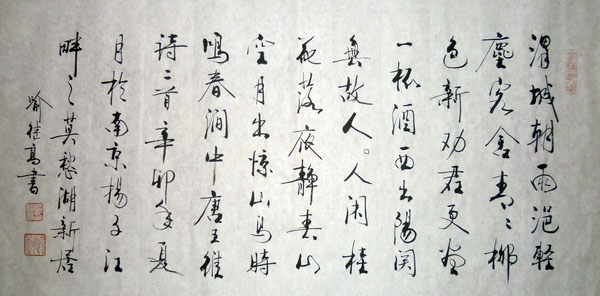 渭城朝雨浥輕
塵客舍青々柳
色新劝君更尽
一杯酒西出陽関
無故人。人闲桂
花落夜静春山
空月出惊山鸟時
鳴春涧中唐王维
诗二首辛卯年夏
月於南京揚子江
畔之莫愁湖新居
喻继高書